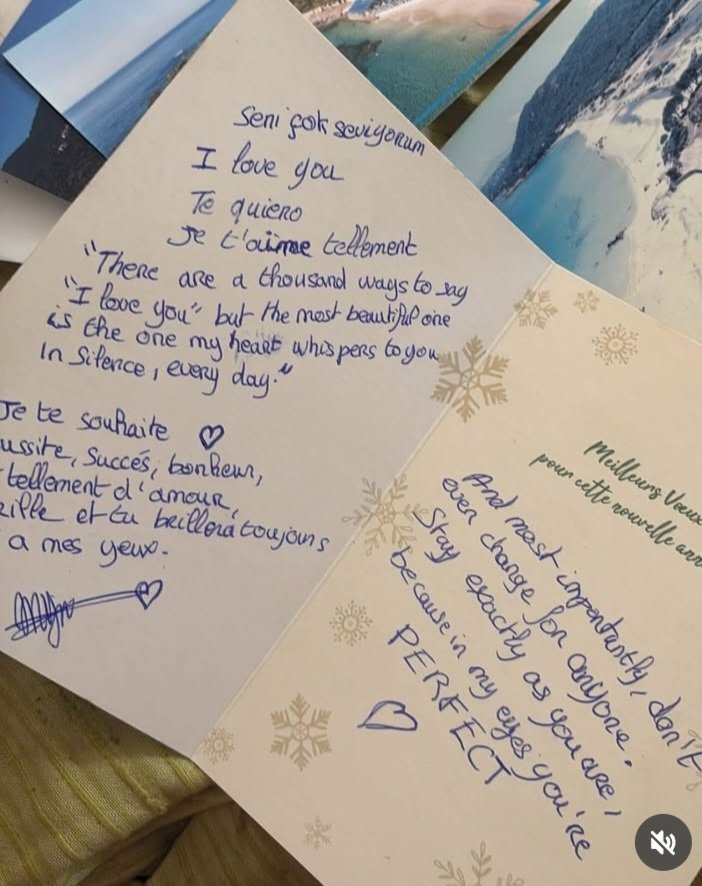 Seni çok seviyorum
I love you
Te quiero
Je t'aime tellement
"There are a thousand ways to say
"I love you" but the most beautiful one
is the one my heart whispers to you
In silence, every day."
Je te souhaite ♡
ussite, succés, bonheur,
tellement d'amour,
rille et tu brillera toujours
a mes yeux.
Meilleurs Vœux
pour cette nouvelle ann
And most importantly, don't
ever change for anyone.
Stay exactly as you are,
because in my eyes you're
PERFECT
♡